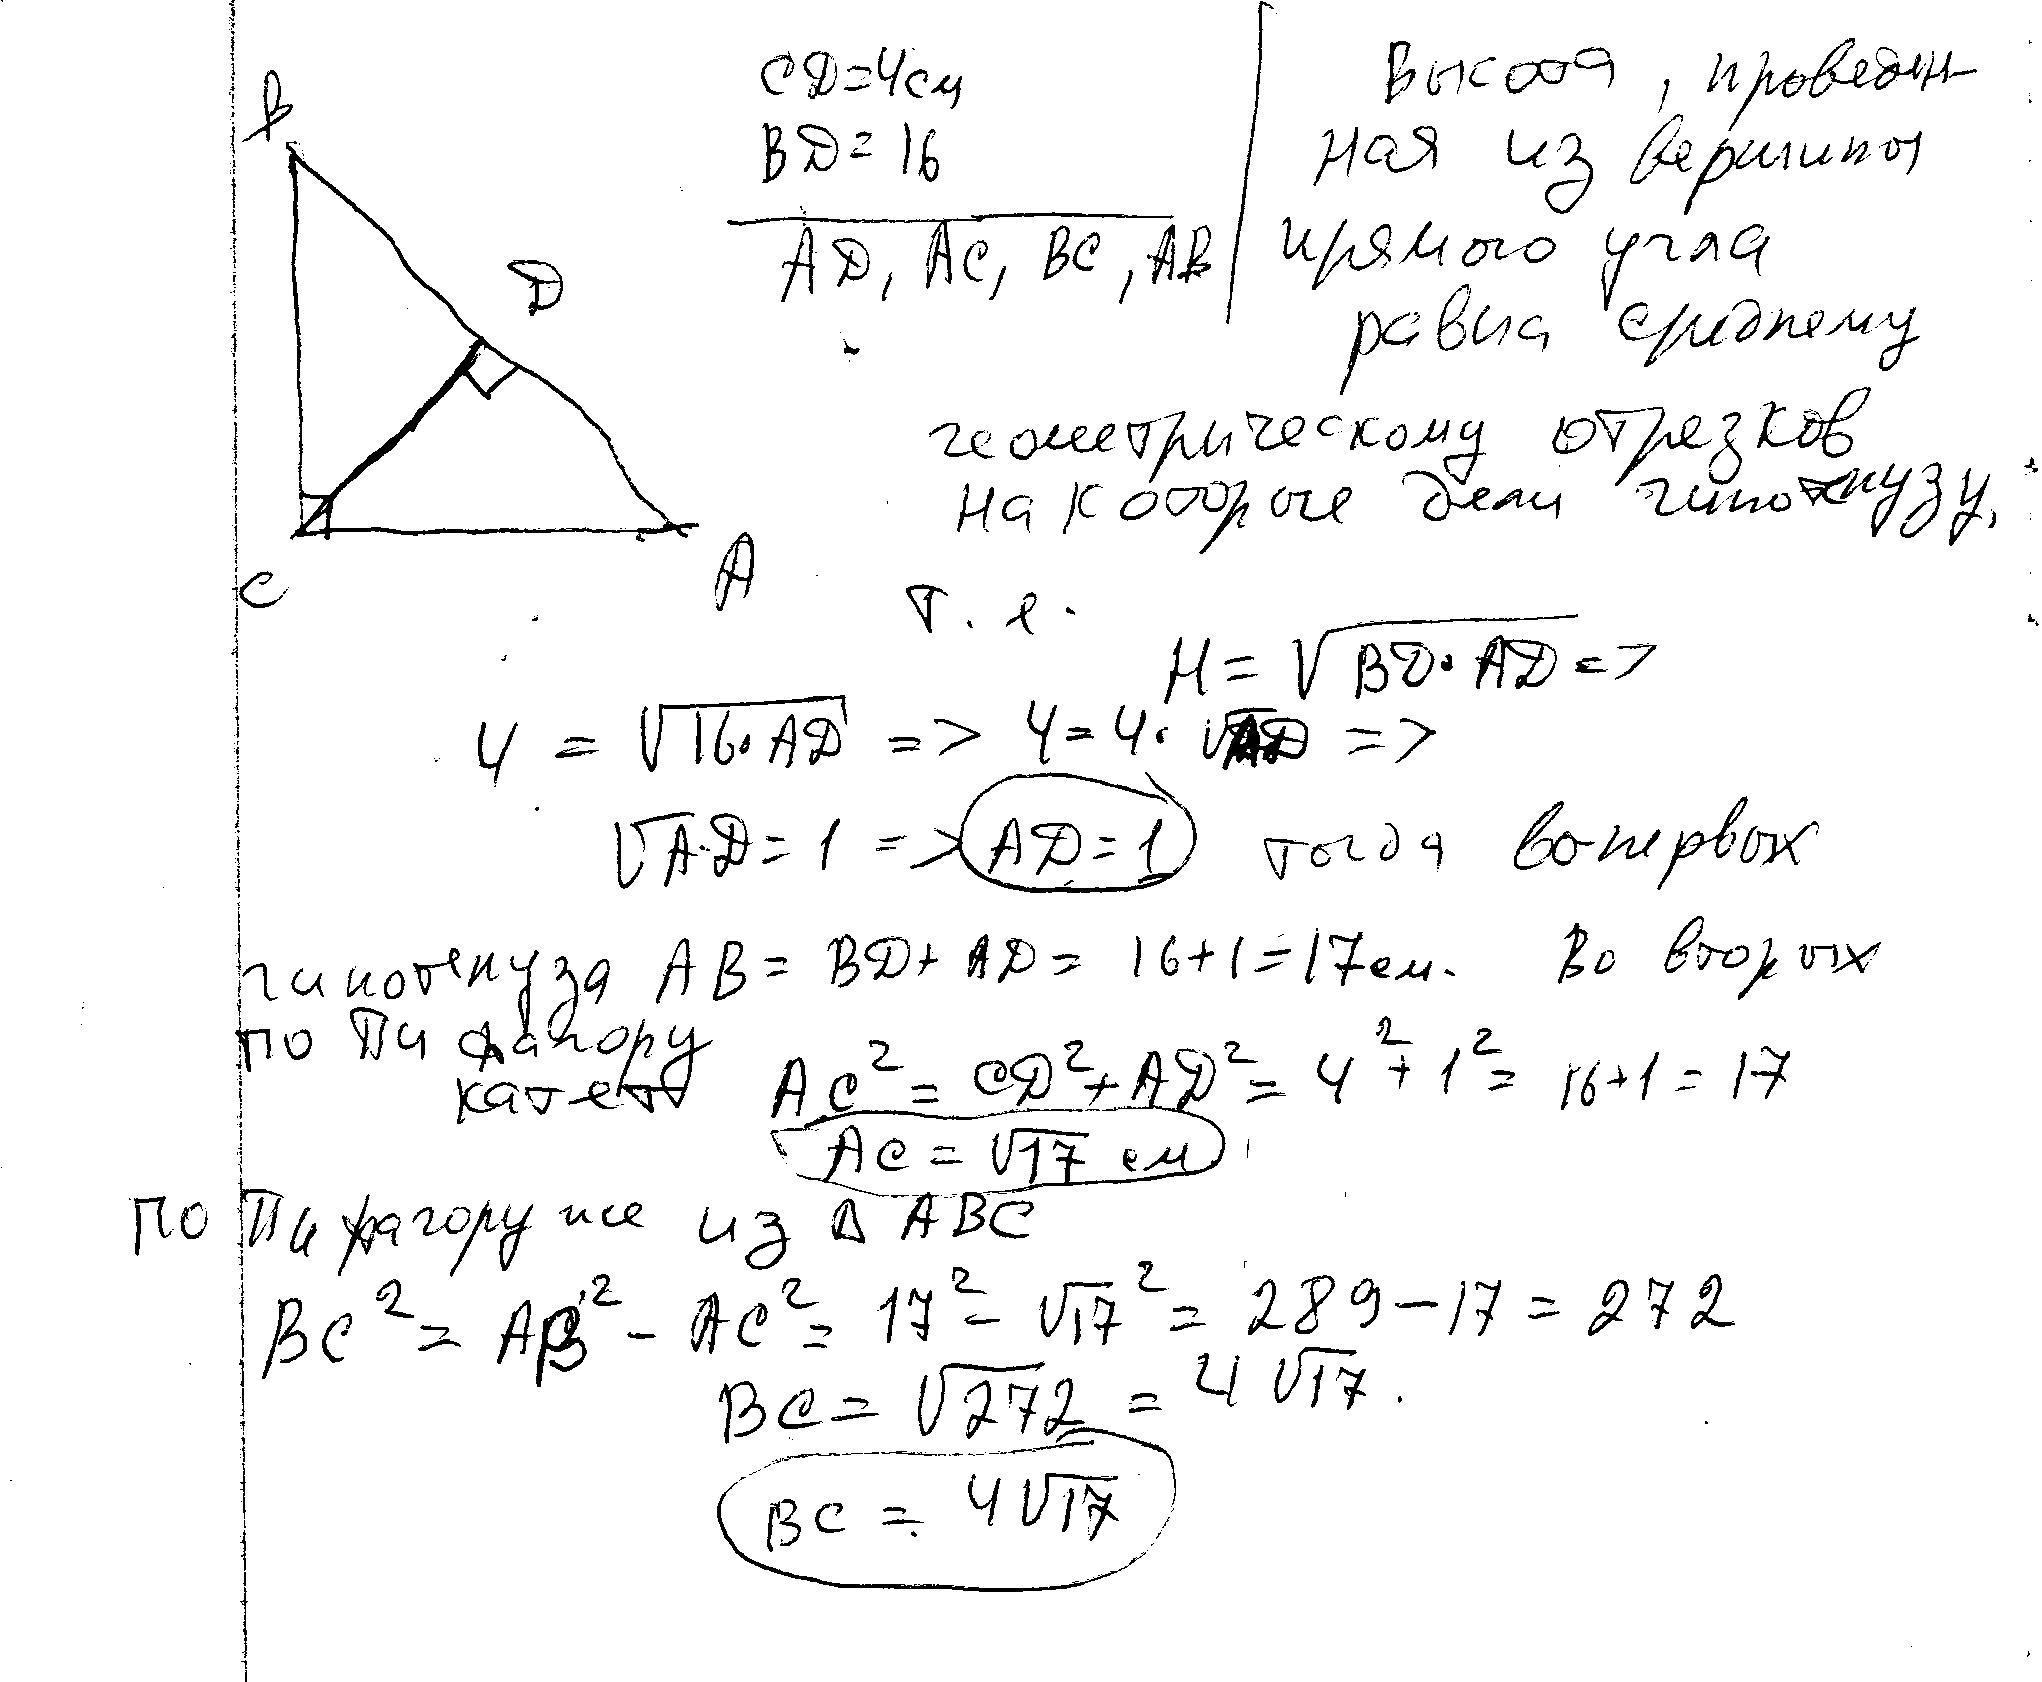 B
D
C
A
CD=4см
BD=16
AD, AC, BC, AB
Высота, проведен-
ная из вершины
прямого угла
равна среднему
геометрическому отрезков
на которые дели гипотенузу,
т. е.
H = √BD·AD =>
4 = √16·AD => 4=4·√AD =>
√AD=1 => AD=1 тогда во первых
гипотенуза AB = BD+AD = 16+1=17см. Во вторых
по Пифагору
катет AC² = CD²+AD² = 4²+1² = 16+1=17
AC = √17 см
По Пифагору же из Δ ABC
BC² = AB² - AC² = 17² - √17² = 289-17 = 272
BC = √272 = 4√17.
BC = 4√17